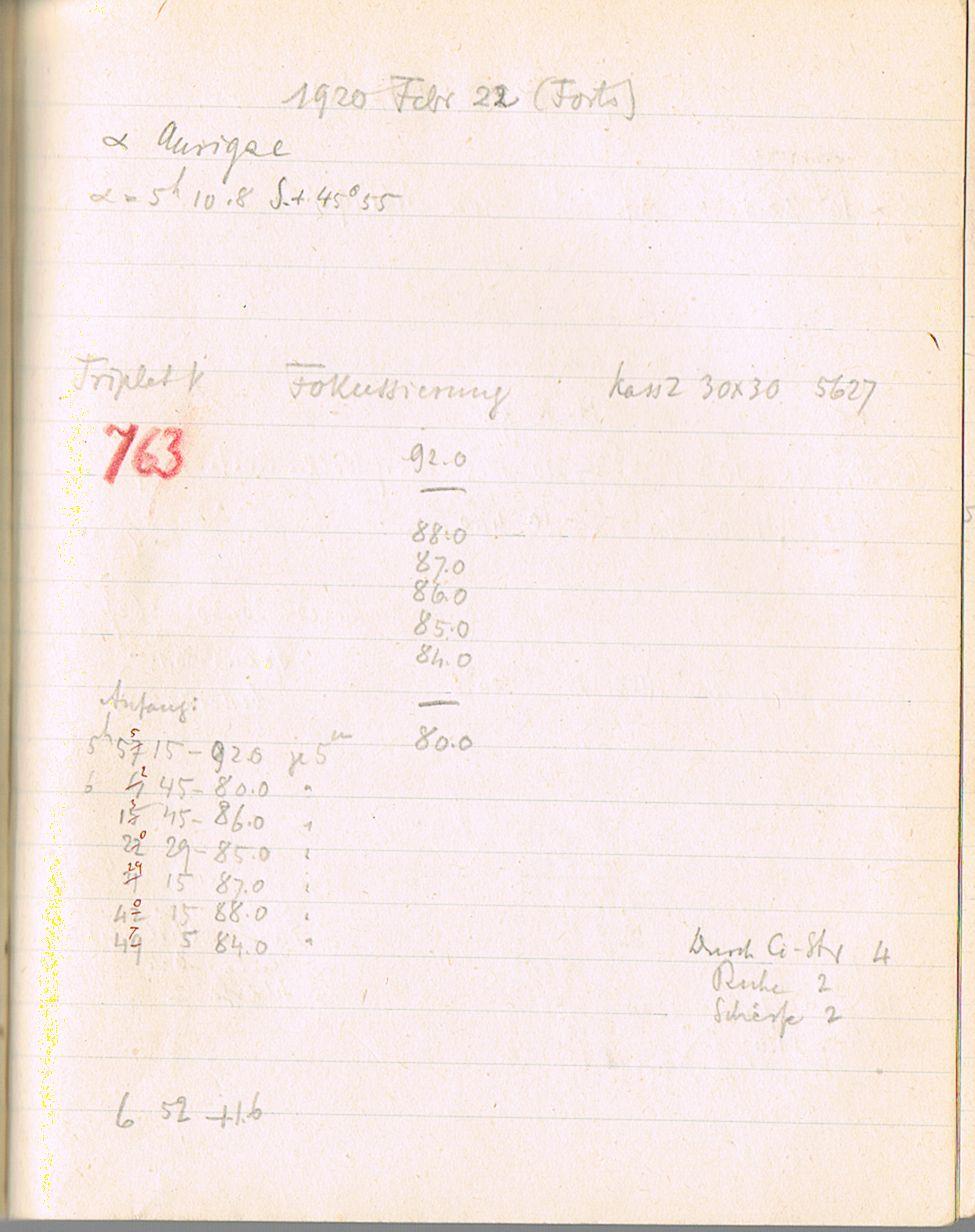 1920 Febr 22 (Forts)
α Aurigae
α = 5h 10.8 δ + 45° 55
Triplet V Fokussierung Kass 2 30x30 5627
763
92.0
—
88.0
87.0
86.0
85.0
84.0
Anfang:
—
80.0
5h 57 5 15 – 92.0 je 5m
6 2 45 – 80.0 "
15 45 – 86.0 "
22 0 29 – 85.0 "
29 15 87.0 "
42 0 15 88.0 "
49 7 5 84.0 "
Durch Ci-Str 4
Ruhe 2
Schärfe 2
6 52 +1.6